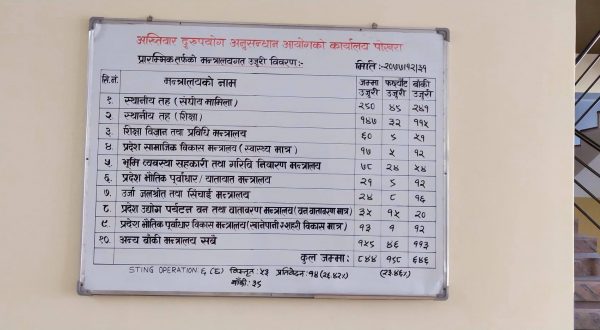 अख्तियार दुरुपयोग अनुसन्धान आयोगको कार्यालय पोखरा
प्रारम्भिक तर्फको मन्त्रालयगत उजुरी विवरण :- मिति :- २०७७/१२/३१
सि.नं. मन्त्रालयको नाम जम्मा उजुरी फर्छ्यौट उजुरी बाँकी उजुरी
१. स्थानीय तह (संघीय मामिला) २८० ४५ २४१
२. स्थानीय तह (शिक्षा) १४७ ३२ ११५
३. शिक्षा विज्ञान तथा प्रविधि मन्त्रालय ६० ८ ५१
४. प्रदेश सामाजिक विकास मन्त्रालय (स्वास्थ्य मात्र) १७ ५ १२
५. भूमि व्यवस्था सहकारी तथा गरिवि निवारण मन्त्रालय ७८ २४ ५४
६. प्रदेश भौतिक पूर्वाधार / यातायात मन्त्रालय २१ ८ १२
७. उर्जा जलश्रोत तथा सिंचाई मन्त्रालय २४ ८ १६
८. प्रदेश उद्योग पर्यटन वन तथा वातावरण मन्त्रालय (वन वातावरण मात्र) ३५ १५ २०
९. प्रदेश भौतिक पूर्वाधार विकास मन्त्रालय (खानेपानी सहरी विकास मात्र) १३ १ १२
१०. अन्य बाँकी मन्त्रालय सबै १५८ ४६ ११३
कुल जम्मा: ८४४ १९८ ६४६
STING OPERATION ६ (८) विस्तृत: ५३ प्रतिवेदन: १४ (२६.४२%) (२३.४६%)
बाँकी: ३८